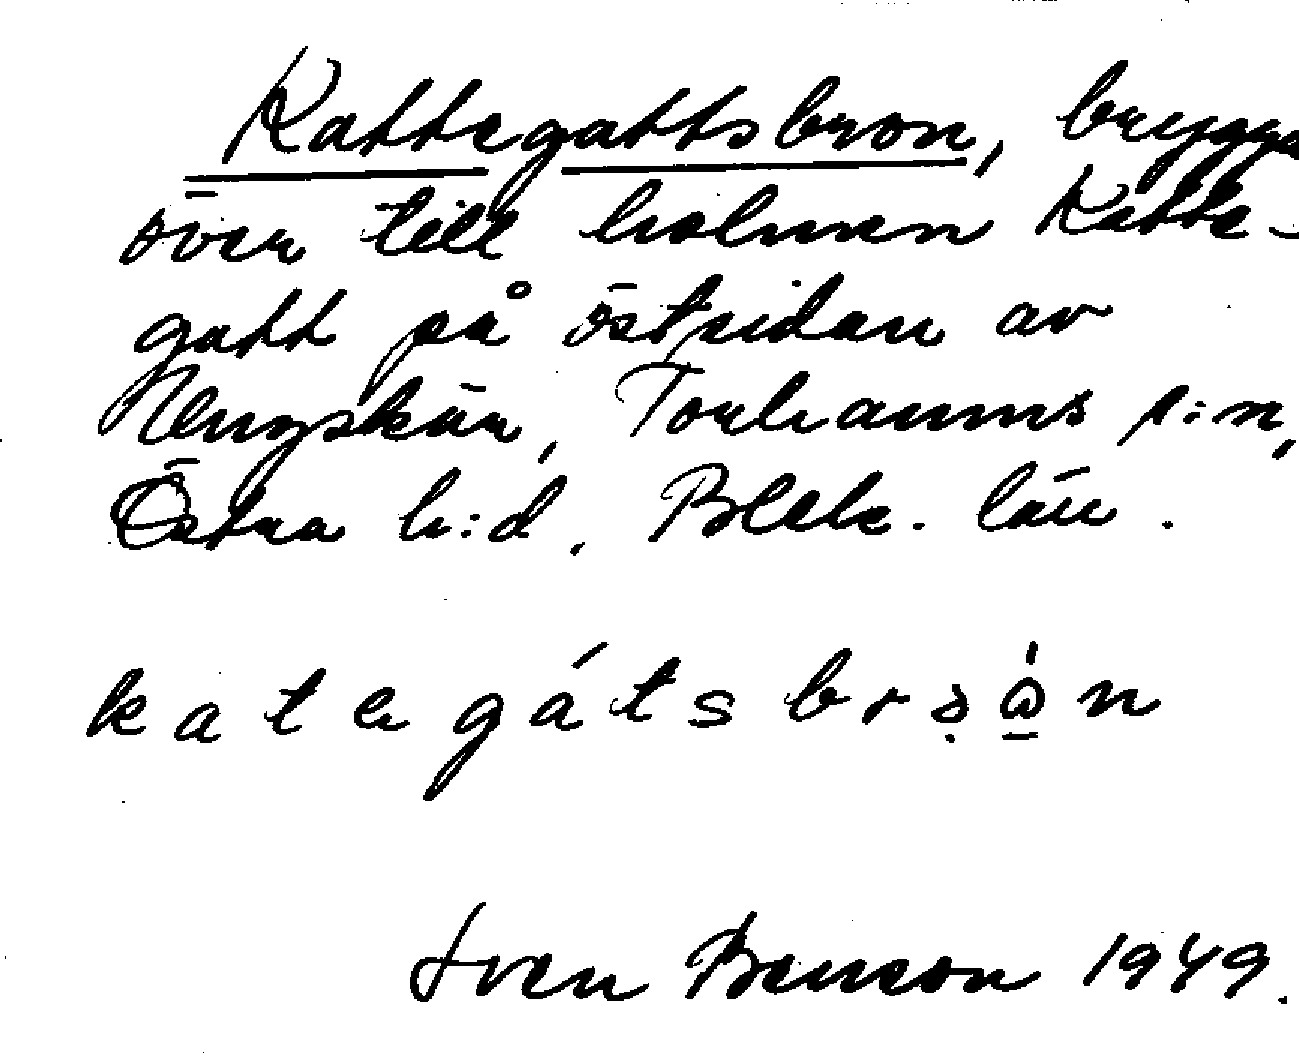 Kattegattsbron, brygga
över till holmen Katte-
gatt på östsidan av
Ungskär, Torhamns s:n,
Östra h:d. Blek. län.
Sven Benson 1949.